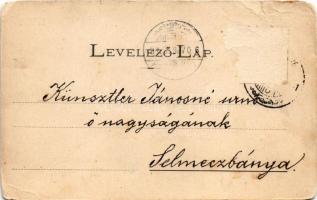 LEVELEZŐ-LAP.
Künsztler Jánosné urnő
ő nagyságának
Selmeczbánya.